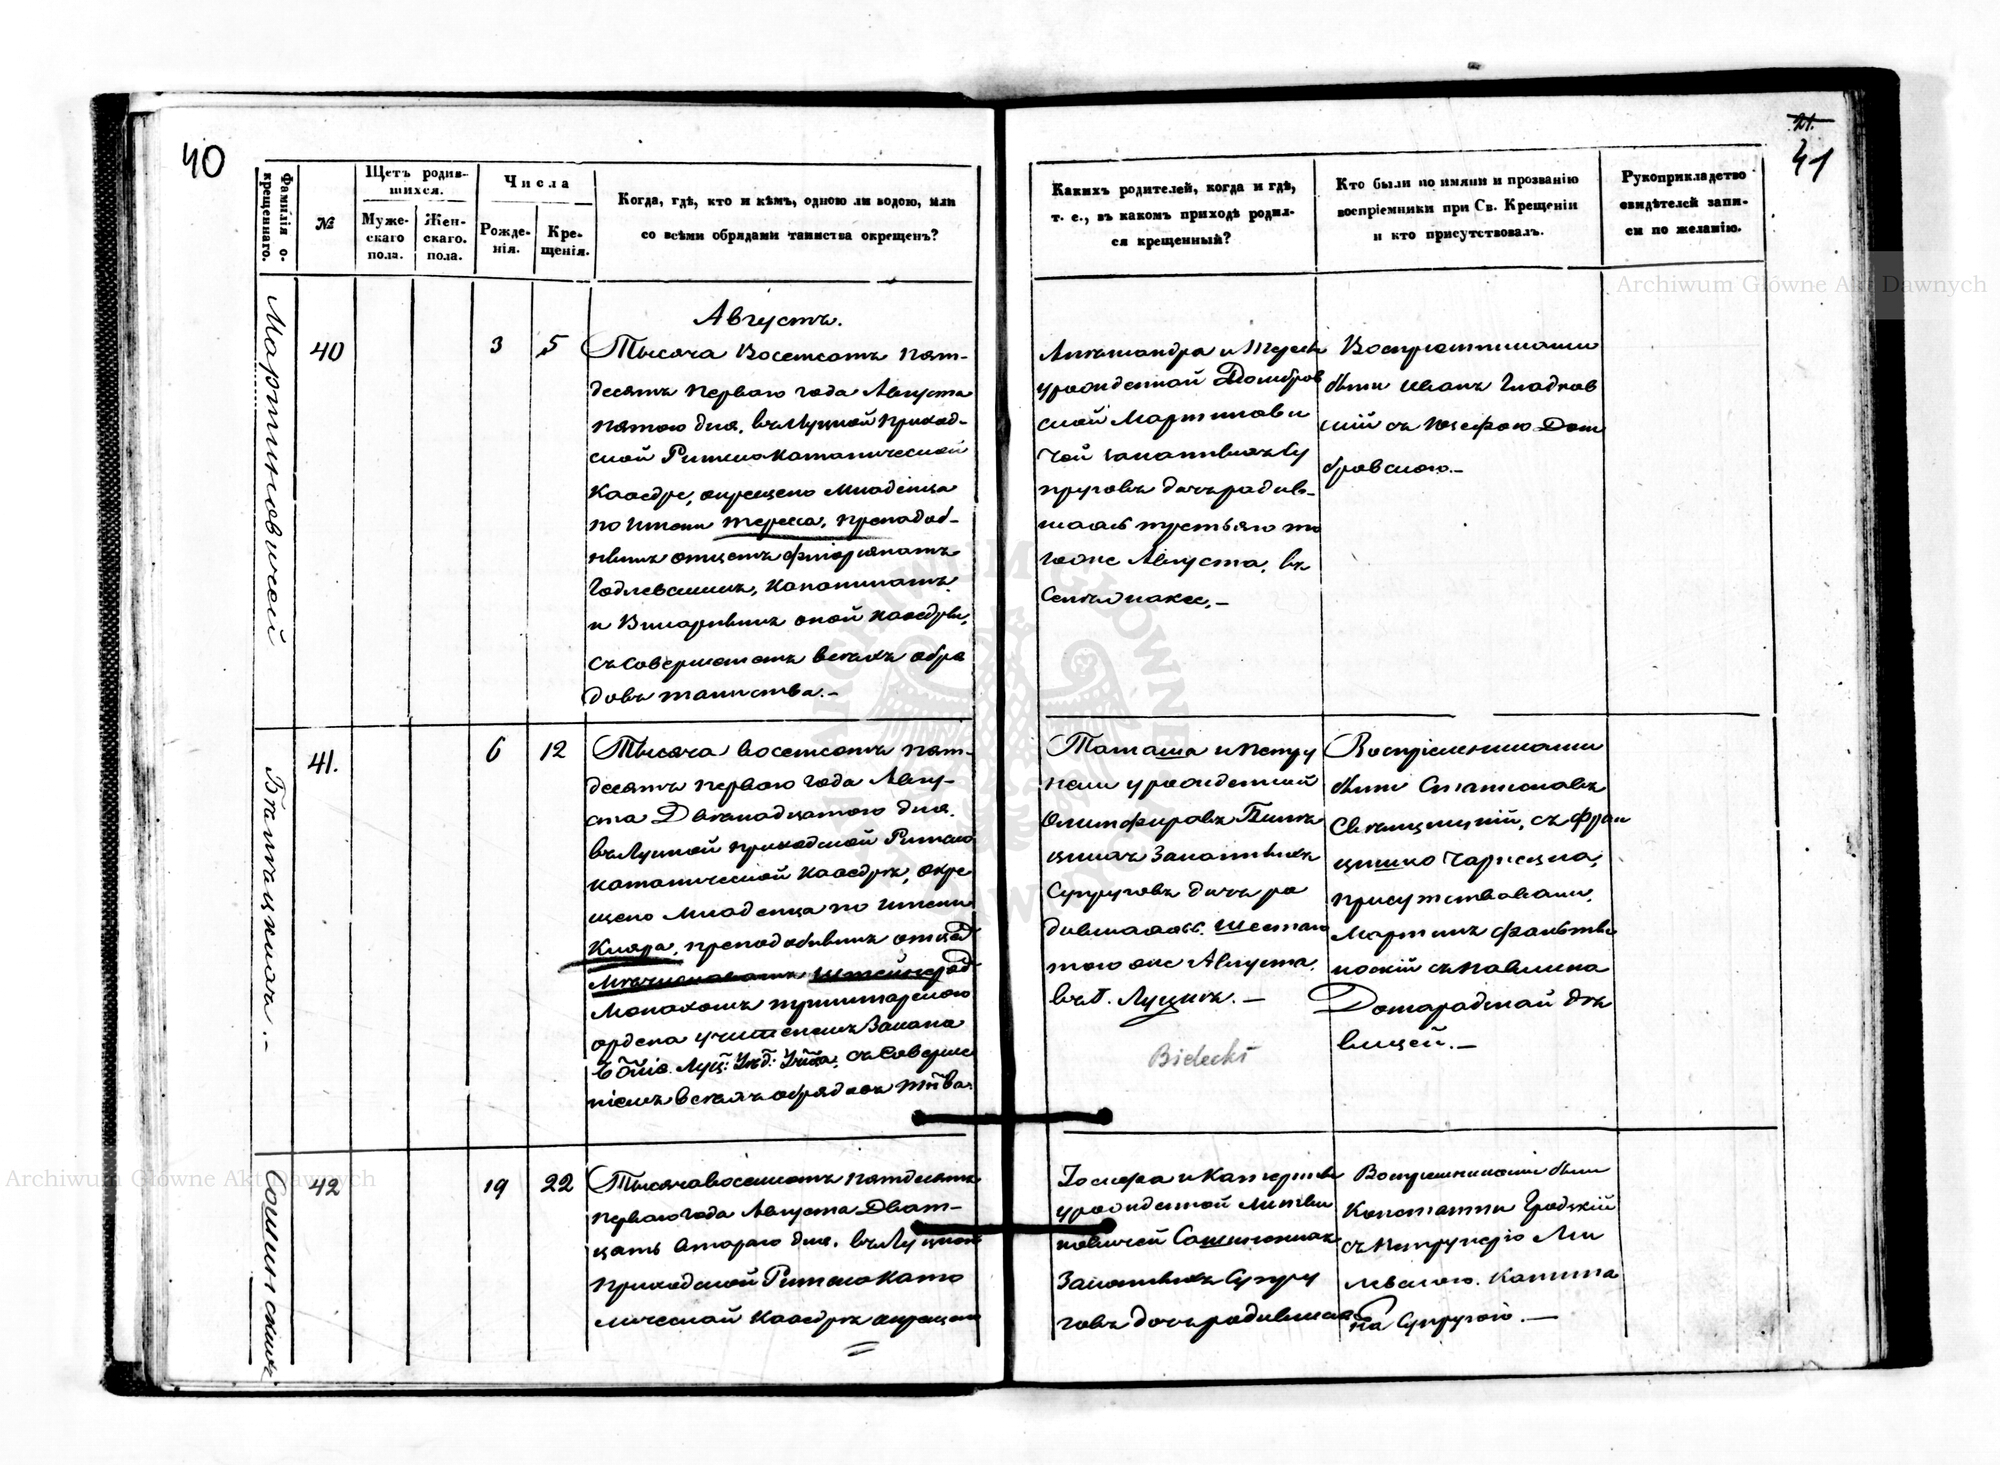 40
Фамилія о-
крещеннаго.
№
Щетъ родив-
шихся.
Муже-
скаго
пола.
Жен-
скаго.
пола.
Числа
Рожде-
нія.
Кре-
щенія.
Когда, гдѣ, кто и кѣмъ, одною ли водою, или
со всѣми обрядами таинства окрещенъ?
Мартиновичей
40
3
5
Августъ.
Тысяча Восемсотъ пят-
десятъ перваго года Августа
пятаго дня, въ Луцкой приход-
ской Римско Католической
Каѳедрѣ, окрещено Младенца
по имени Тереса, преподоб-
нымъ отцемъ Флоріяномъ
Годлевскимъ, Капланомъ
и Викарнымъ оной Каѳедры,
съ совершеніемъ всѣхъ обря
довъ таинства.–
41.
6
12
Тысяча восемсотъ пят-
десятъ перваго года Авгу-
ста Двенадцатого дня,
въ Луцкой приходской Римско
католической Каѳедрѣ, окре
щено Младенца по имени
Клара, преподобнымъ отцемъ
Монахомъ тринитарского
ордена учителемъ Закона
Б Луц: Уѣд: съ соверше
ніемъ всѣхъ обрядовъ
Сошинскихъ
42
19
22
Тысяча восемсотъ пятдесятъ
перваго года Августа Двад-
цать втораго дня, въ Луцкой
приходской Римско Като
лической Каѳедрѣ окрещено
21.
41
Какихъ родителей, когда и гдѣ,
т. е., въ какомъ приходѣ родил-
ся крещенный?
Кто были по имяни и прозванію
воспріемники при Св. Крещеніи
и кто присутствовалъ.
Рукоприкладство
свидѣтелей запи-
си по желанію.
Александра и Тереси
урожденной Домбров
ской Мартинови
чей законныхъ Су
пруговъ дочь родив-
шаясь третьяго то
гоже Августа, въ
Воспріемниками
были Иванъ Гладков
скій съ Юзефою Дом
бровскою.–
и Петру
нели урожденной
Законныхъ
Супруговъ дочь ро
дившаясь шестаго
тогоже Августа,
въ Г. Луцкѣ.–
Bielecki
Воспріемниками
были Станиславъ
съ Фран
цишко
присутствовали,
Мартинъ
съ Павлина
Домарадской дѣ
вицей.–
Іосифа и Катерини
урожденной Литви
новичей Сошинскихъ
Законныхъ Супру
говъ дочь родившаяс
Воспріемниками были
Константи Гродзкій
съ Петрунелію Ми
левскою. Капита
на Супругою.–
Archiwum Główne Akt Dawnych
Archiwum Główne Akt Dawnych